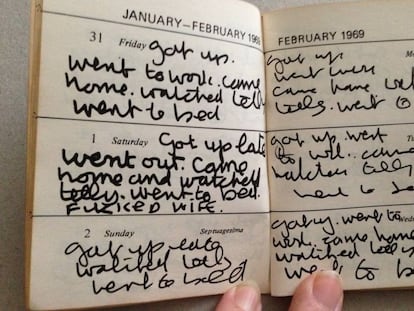 JANUARY–FEBRUARY 1969
31 Friday got up.
went to work. came
home. watched telly
went to bed
1 Saturday Got up late
went out. came
home and watched
telly. went to bed.
2 Sunday Septuagesima
got up late
watched telly
went to bed
FEBRUARY 1969
got up.
went work
came home
telly. went to
got up. went
to
watched telly
went to bed
went to
work. came home
watched telly
went to bed